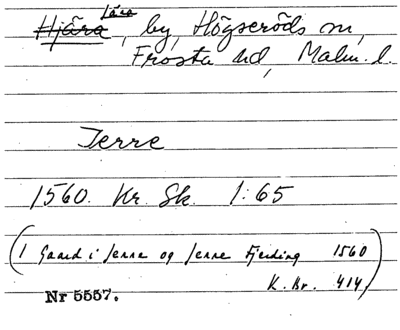 Hjära Jära, by, Högseröds sn,
Frosta hd, Malm. l.
Jerre
1560. Kr. Sk. 1:65
(1 Gaard i Jerre og Jerre Fjerding 1560
K. Br. 414)
Nr 5557.